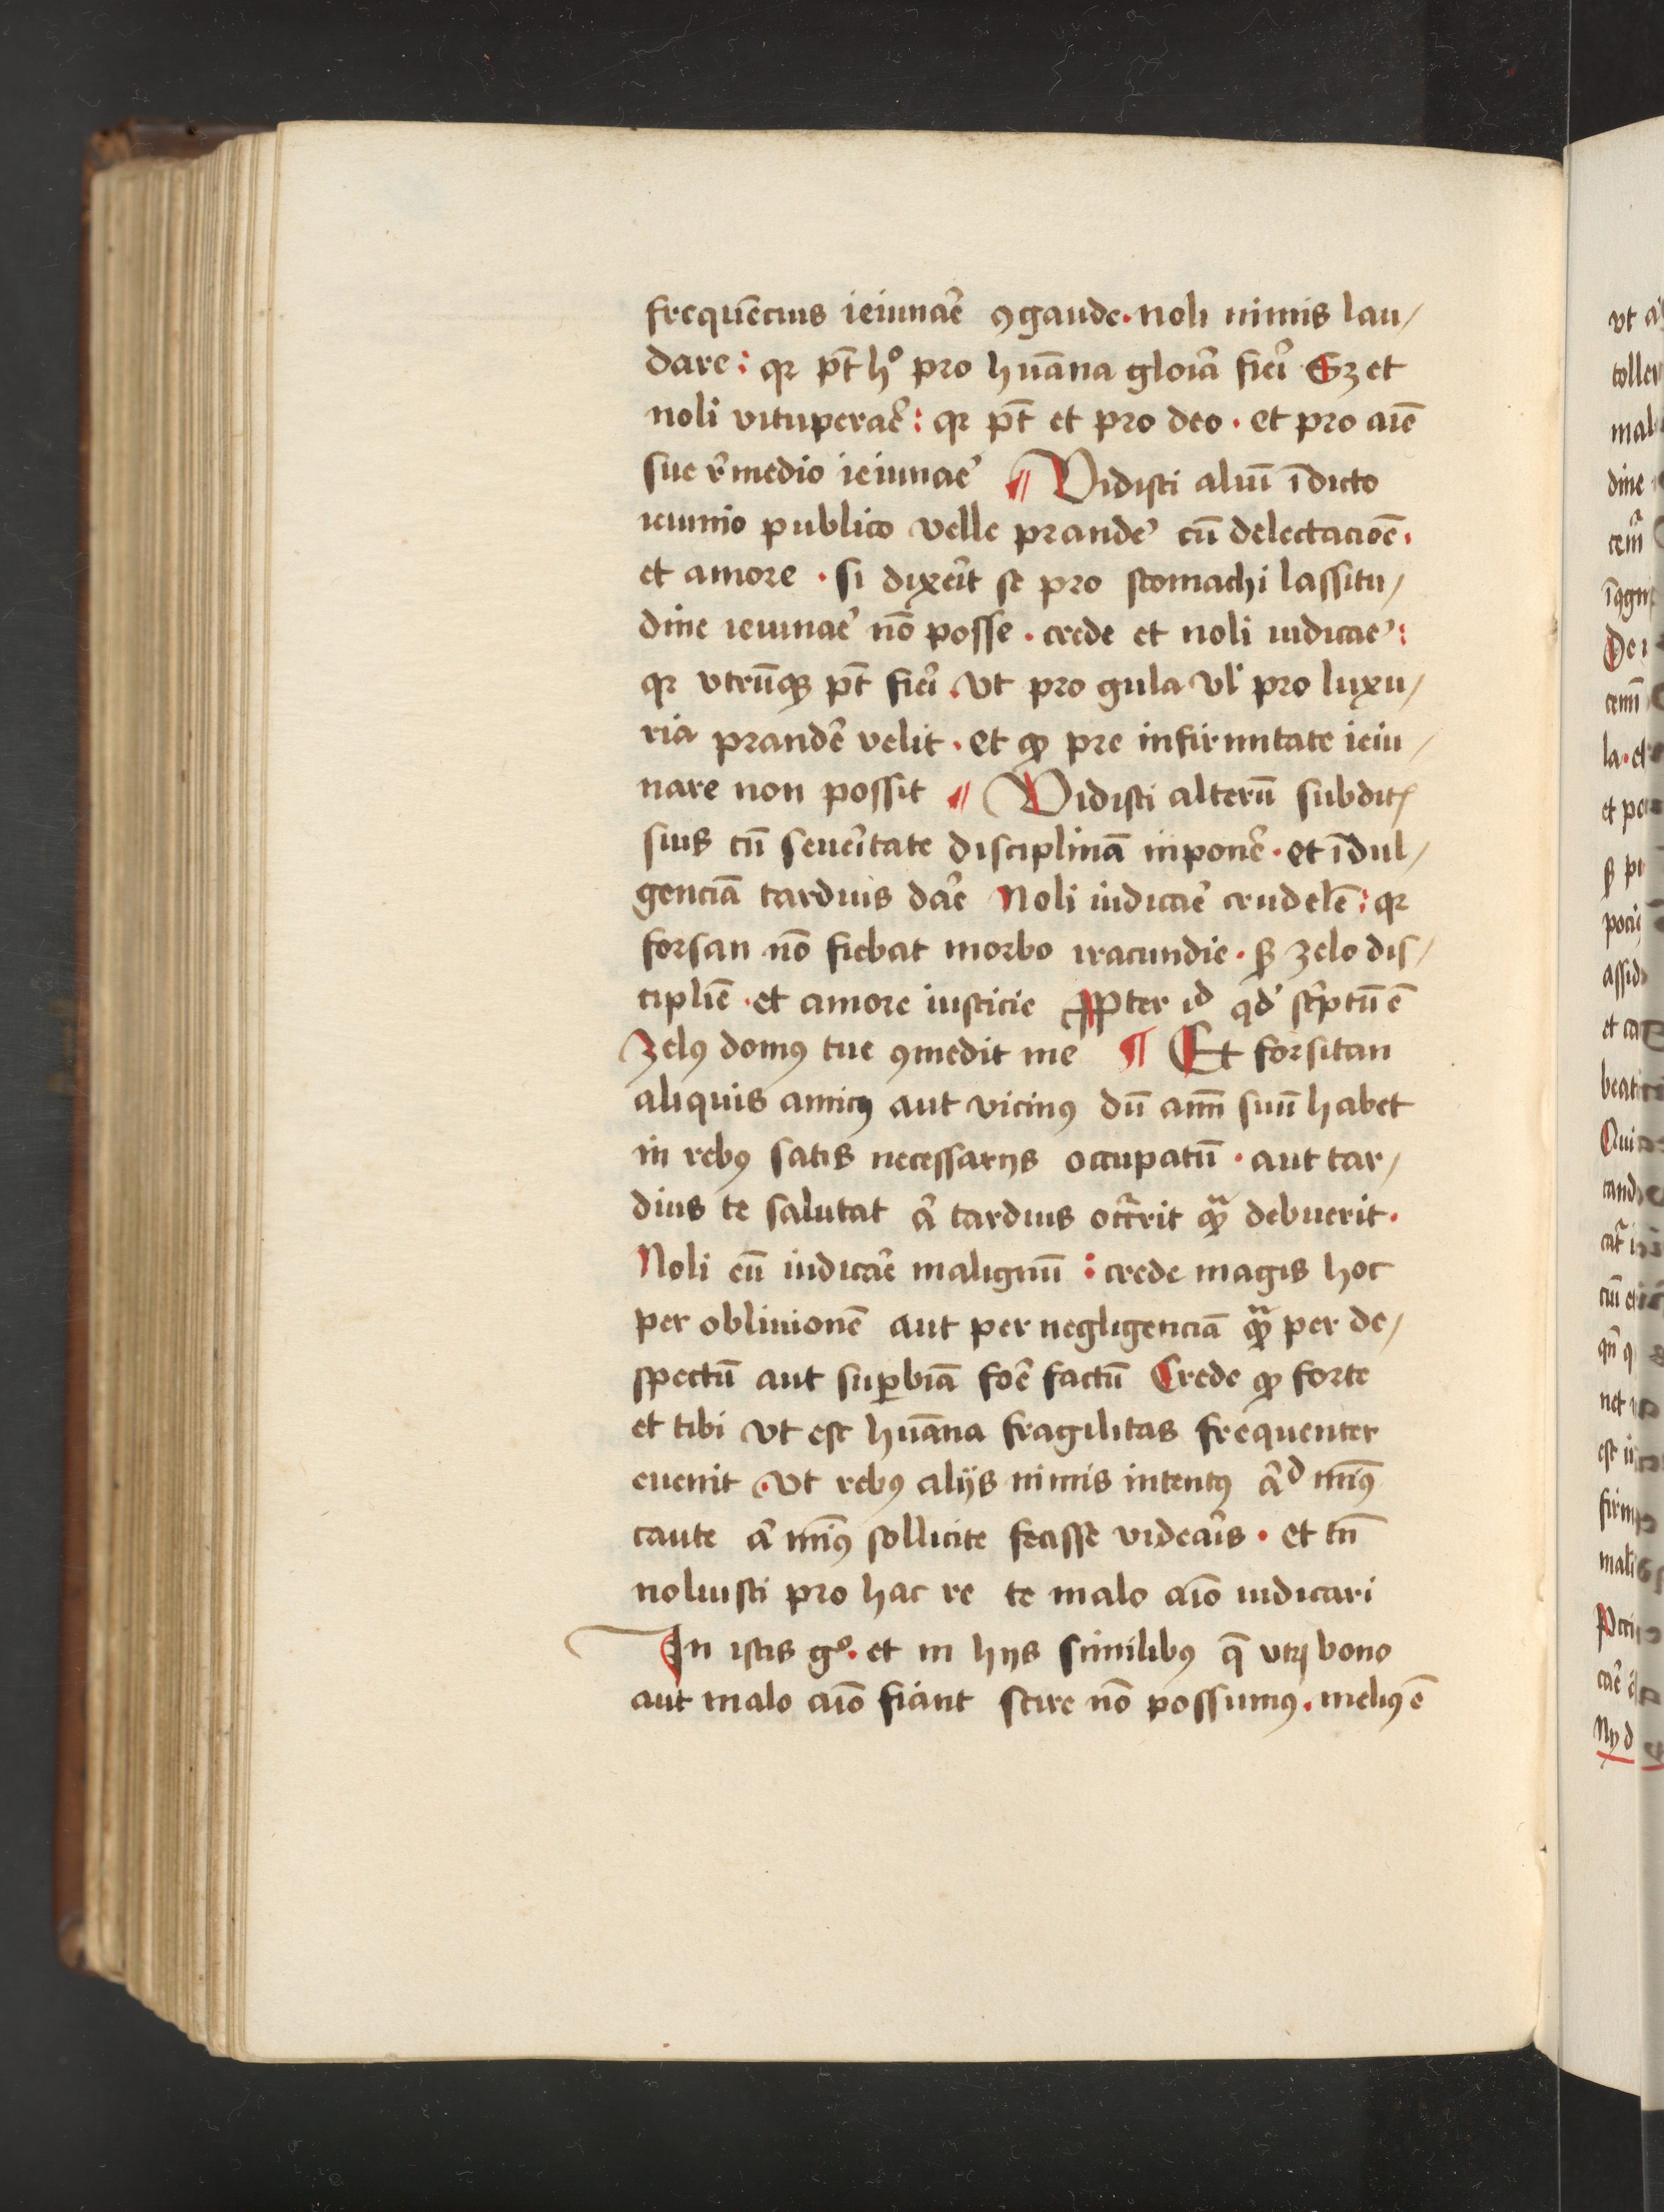 frequēcius ieiunar̄e ꝯgaude · noli nimis lau/
dare : qꝛ pt̄ hͦ pro hūana gloīa fiei Sz et
noli vituperae᷒ : qꝛ pt̄ et pro deo · et pro aīe
sue r̄medio ieiunae᷒ ¶ Vidisti aliū īdicto
ieiunio publico velle prande᷒ cū delectacioē ·
et amore · si dixeīt se pro stomachi lassitu/
dine ieiunae᷒ nō posse · crede et noli iudicae᷒ :
qꝛ vtrūqꝫ pt̄ fiei · vt pro gula vl᷒ pro luxu/
ria prandē velit · et ꝙ pre infirmitate ieiu/
nare non possit ¶ Vidisti alterū subditꝭ
suis cū seueītate disciplinā inponē · et īdul/
genciā tardius dāe Noli iudicāe crudelē : qꝛ
forsan nō fiebat morbo iracundie · sꝫ zelo dis/
cipliē · et amore iusticie Ꝓpter id qd᷒ sc̄ptū ē
Zelꝰ domꝰ tue ꝯmedit me ¶ Et forsitan
aliquis amicꝰ aut vicinꝰ dū aīm suū habet
in rebꝰ satis necessarijs occupatū · aut tar/
dius te salutat a᷒ tardius occ᷒rit ꝙᷓ debuerit ·
Noli eū iudicāe malignū : crede magis hoc
per obliuionē aut per negligenciā ꝙᷓ per de/
spectū aut suꝑbiā foē factū Crede ꝙ forte
et tibi vt est hūana fragilitas frequenter
euenit · vt rebꝰ alijs nimis intentꝰ a᷒d mīꝰ
caute a᷒ mīꝰ sollicite fecisse videaīs · et tn̄
noluisti pro hac re te malo aīo iudicari
In istis gͦ · et in hijs similibꝰ q̄ vtꝝ bono
aut malo aīo fiant scire nō possumꝰ · meliꝰ ē